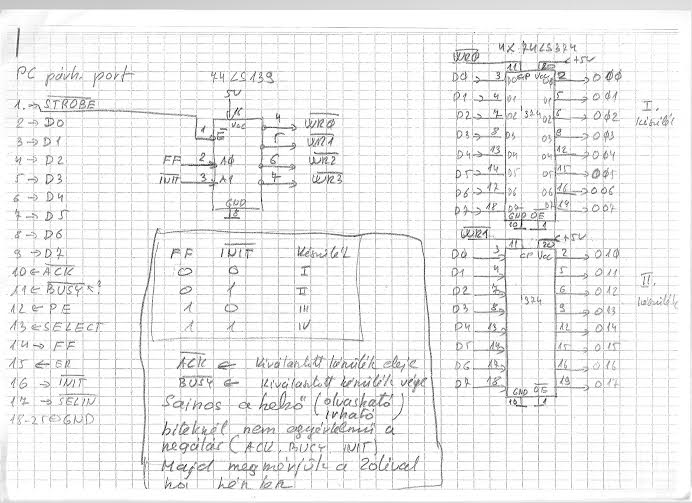 PC párh. port
1. → STROBE
2 → D0
3 → D1
4 → D2
5 → D3
6 → D4
7 → D5
8 → D6
9 → D7
10 ← ACK
11 ← BUSY ←?
12 ← PE
13 ← SELECT
14 → FF
15 ← ER
16 → INIT
17 → SELIN
18-25 ⊖ GND
74LS139
5V
16
Vcc
1 E 4 WR0
5 WR1
FF 2 A0 6 WR2
INIT 3 A1 7 WR3
GND
8
FF INIT Készülék
0 0 I
0 1 II
1 0 III
1 1 IV
ACK ← kiválasztott készülék eleje
BUSY ← kiválasztott készülék vége
Sajnos a belső (olvasható
írható)
biteknél nem egyértelmű a
negálás (ACK, BUSY, INIT)
Majd megmérjük a Zolival
4x 74LS374
WR0 +5V
11 20
CP Vcc
D0 3 D0 O0 2 O00
D1 4 D1 O1 5 O01
D2 7 D2 O2 6 O02
D3 8 D3 O3 9 O03
D4 13 D4 O4 12 O04
D5 14 D5 O5 15 O05
D6 17 D6 O6 16 O06
D7 18 D7 O7 19 O07
'374
GND OE
10 1
I. készülék
WR1 +5V
11 20
CP Vcc
D0 3 2 O10
D1 4 5 O11
D2 7 6 O12
D3 8 9 O13
D4 13 12 O14
D5 14 15 O15
D6 17 16 O16
D7 18 19 O17
'374
GND OE
10 1
II. készülék